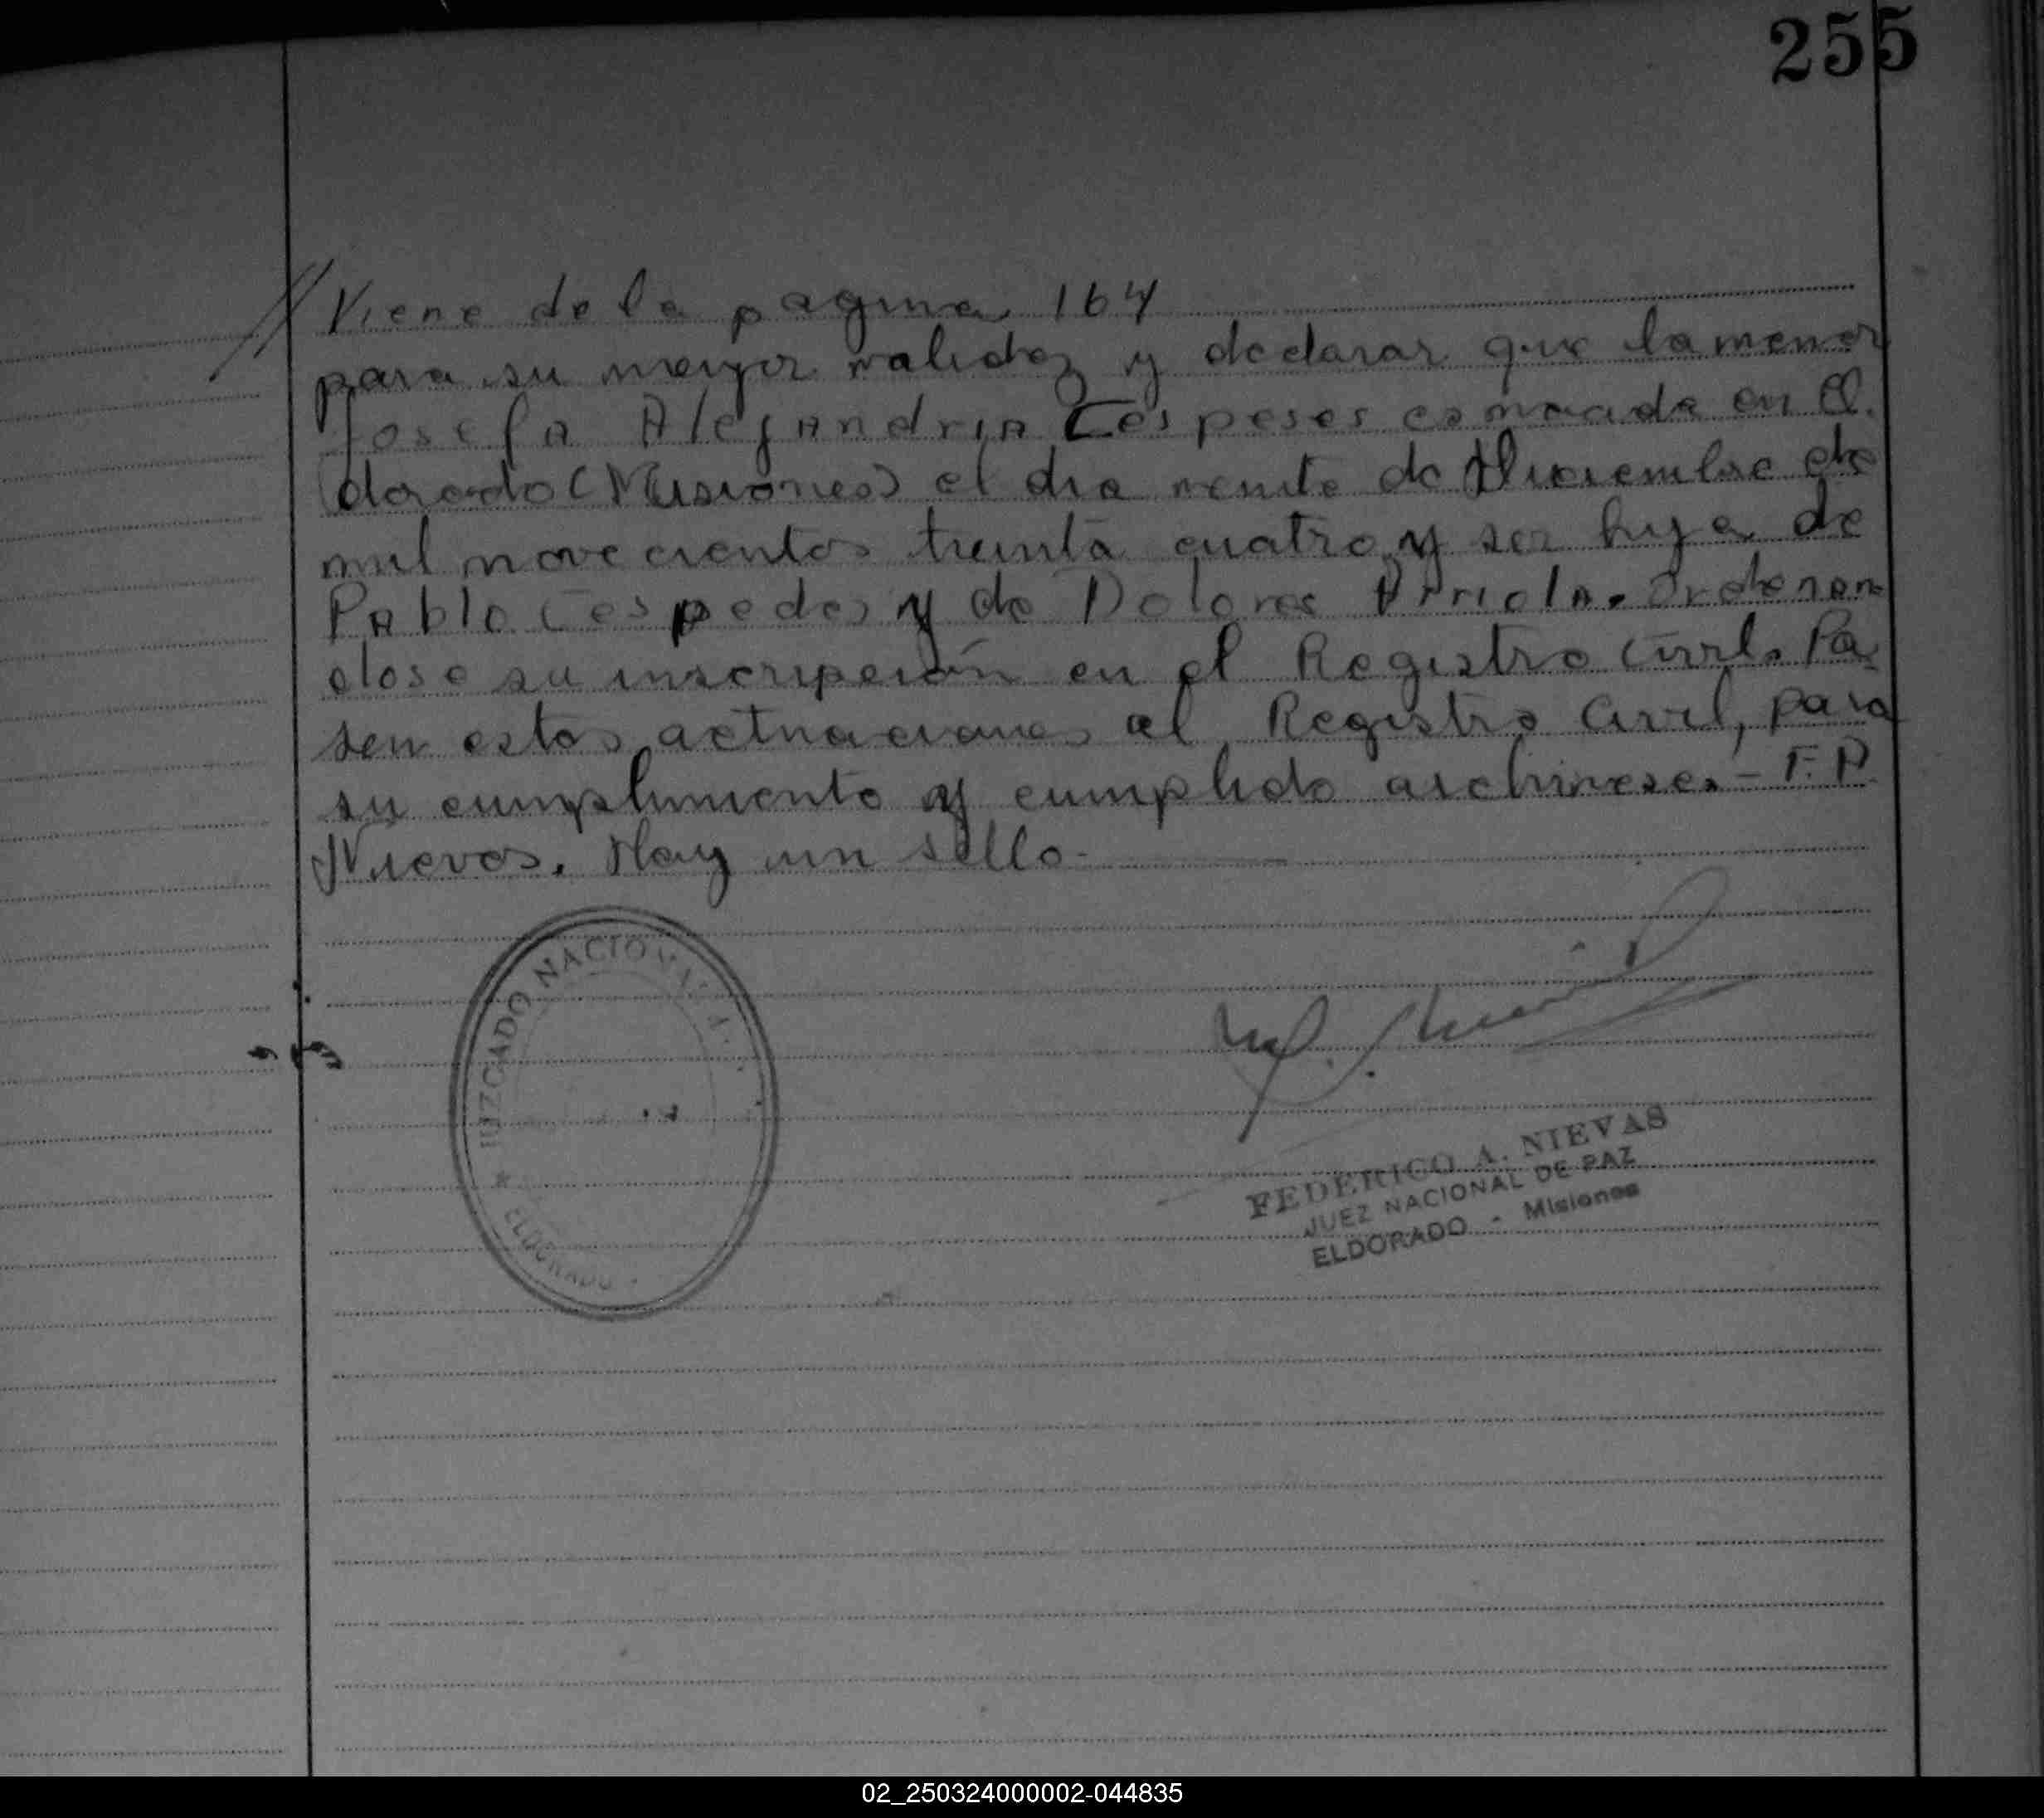 255
// Viene de la pagina 164
para su mayor validez y declarar que la menor
Josefa Alejandria Cespeses es nacida en El
dorado (Misiones) el dia veinte de Diciembre de
mil novecientos treinta cuatro y ser hija de
Pablo Cespedes y de Dolores Arriola. Ordenan
dose su inscripción en el Registro Civil. Pa
sen estas actuaciones al Registro Civil, para
su cumplimiento y cumplido archivese. - F. A.
Nievas. Hay un sello -
JUZGADO NACIONAL
ELDORADO
FEDERICO A. NIEVAS
JUEZ NACIONAL DE PAZ
ELDORADO - Misiones
02_250324000002-044835